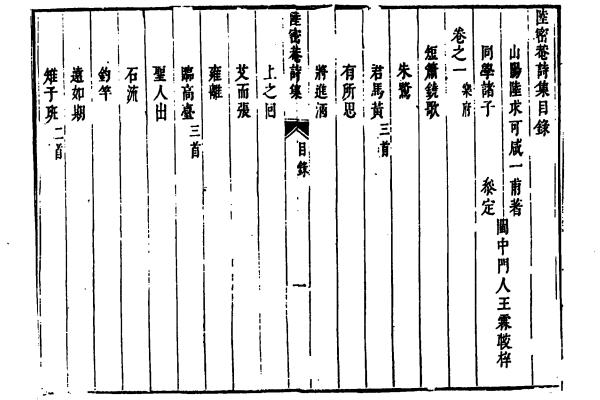 陸密菴詩集目錄
山陽陸求可咸一甫著
同學諸子 參定
閩中門人王霖校梓
卷之一 樂府
短簫鐃歌
朱鷺
君馬黃三首
有所思
將進酒
陸密菴詩集 目錄 一
上之回
艾而張
雍離
臨高臺三首
聖人出
石流
釣竿
遠如期
雉子班二首